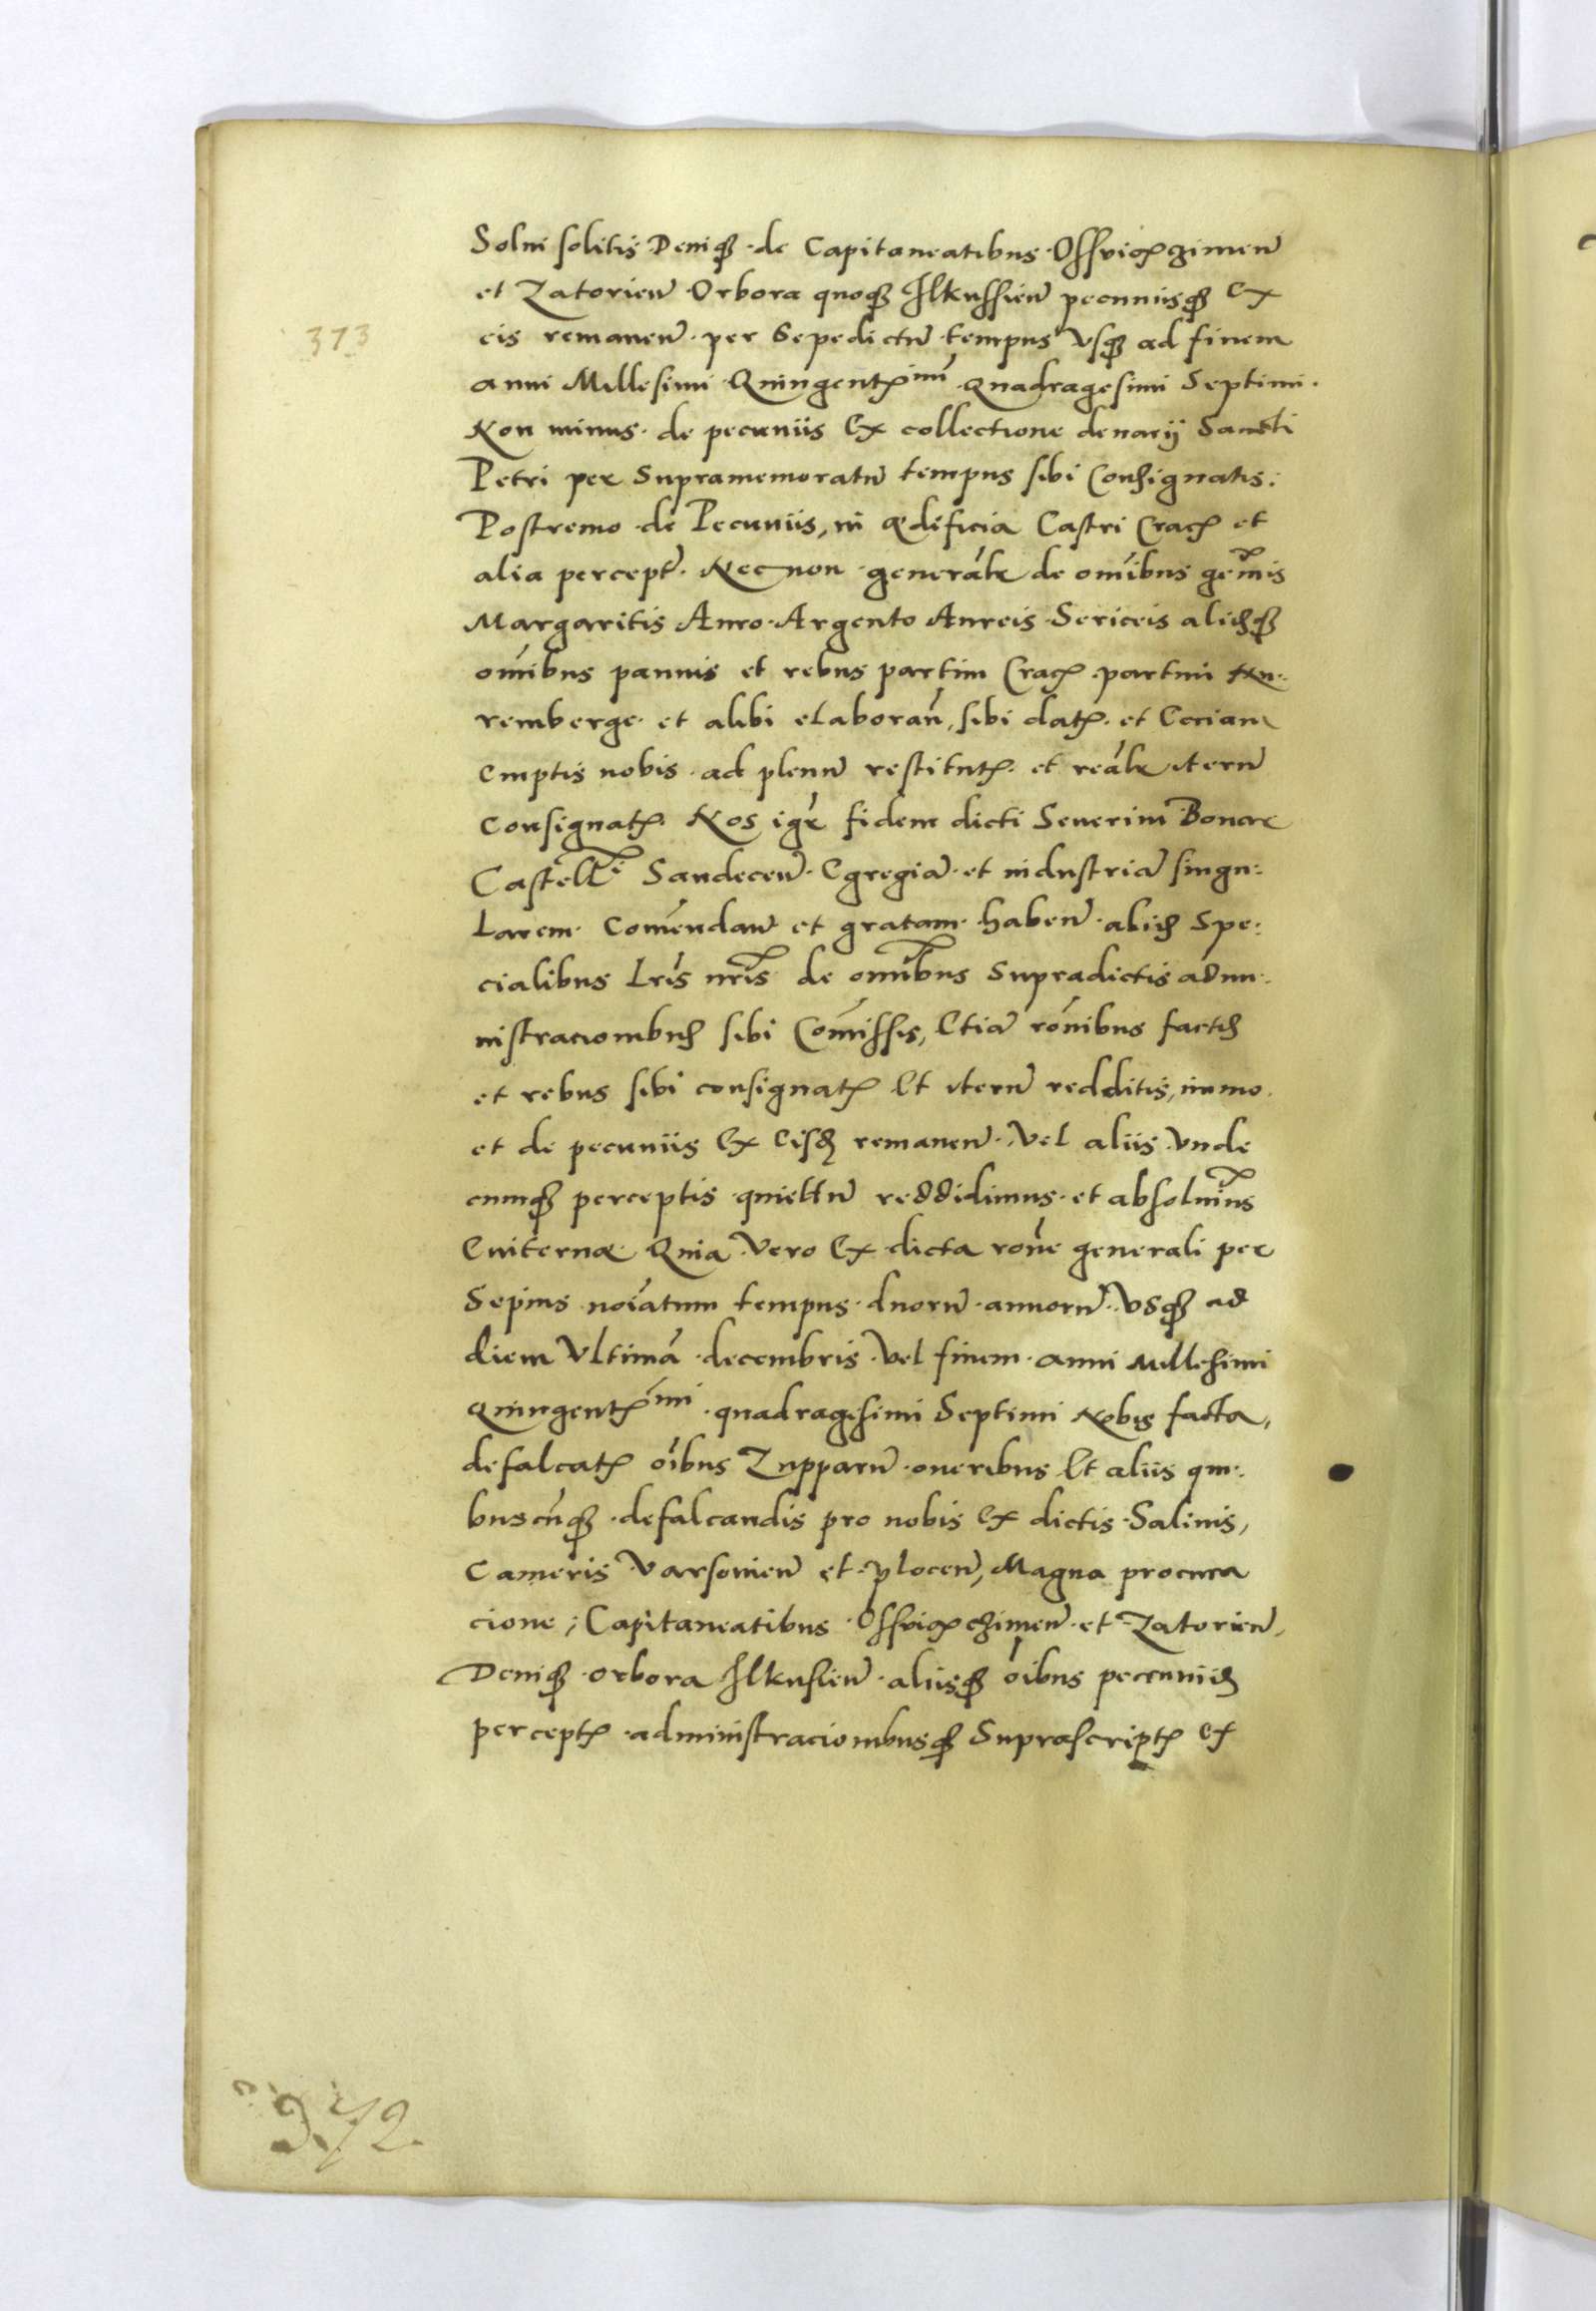 Solui solitis Deniq₃ de Capitaneatibus Ossvieczimen̄
et Zatorien̄ Orbora quoq₃ Ilkussien̄ pecuniisq₃ ex
373
eis remanen̄ per Sepedictū tempus vsq₃ ad finem
anni Millesimi Quingentᵐⁱ quadragesimi Septimi.
Non minus de pecuniis Ex collectione denarij Sancti
Petri per Supramemoratū tempus sibi Consignatis:
Postremo de Pecuniis, in ædificia Castri Crac̄ et
alia percept̄. Necnon generāle de omībus gem̄is
Margaritis Auro Argento Aureis Sericeis aliisq₃
omībus pannis et rebus partim Crac̄ partim Nu-
remberge et alibi elaboran̄, sibi dat̄ et Eciam
Emptis nobis ad plenū restitut̄ et reāle iterū
Consignat̄. Nos igr̄ fidem dicti Seuerini Bonar
Castellⁱ Sandecen̄ Egregiā et industriā singu:
Larem Comēndan̄ et gratam haben̄ aliis Spe:
cialibus Lrīs nrīs de omībus Supradictis admi-
nistracionibus sibi Com̄issis, Etiā rōnibus factis
et rebus sibi consignat̄ Et iterū redditis, immo
et de pecuniis Ex eisd̄ remanen̄ Vel aliis Vnde
cumq₃ perceptis quiettū reddidimus et absoluim̄us
Euiternæ Quia Vero Ex dicta rōne generali per
Sepius noīatum tempus duorū annorū Vsq₃ ad
diem Vltimā decembris Vel finem anni Millesimi
Quingentᵐⁱ quadragesimi Septimi Nobis facta,
defalcat̄ oībus Zupparū oneribus Et aliis qui:
buscūq₃ defalcandis pro nobis ex dictis Salinis,
Cameris Varsouien̄ et plocen̄, Magna procura
cione, Capitaneatibus Ossvieczimen̄ et Zatorien̄,
Deniq₃ orbora Ilkusien̄ aliisq₃ oībus pecuniis
percept̄ administracionibusq₃ Suprascript̄ ex
372.